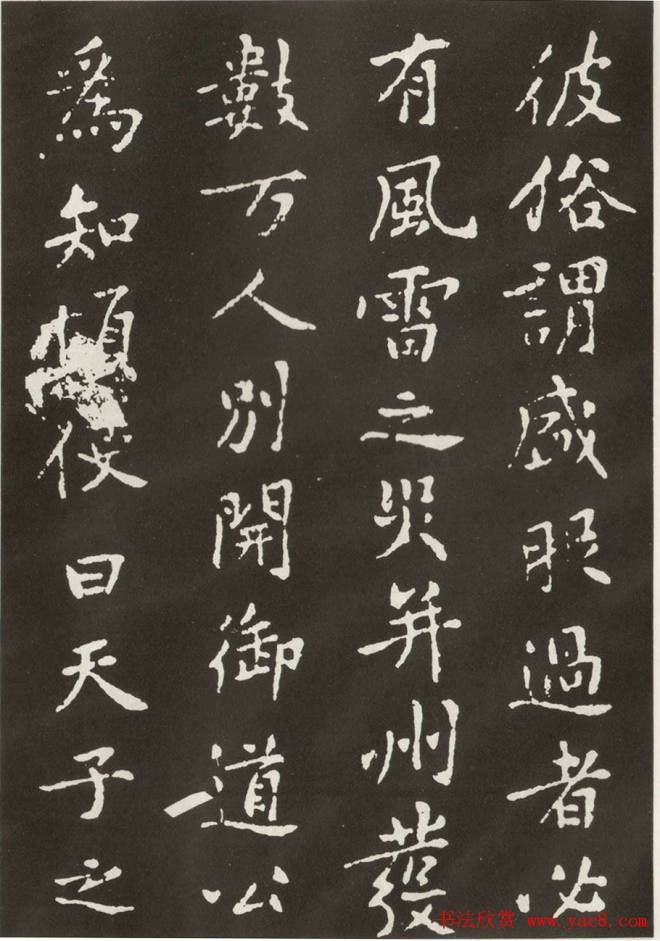 彼俗謂盛服過者必
有風雷之災并州發
數万人別開御道公
爲知頓使曰天子之
书法欣赏 www.yac8.com